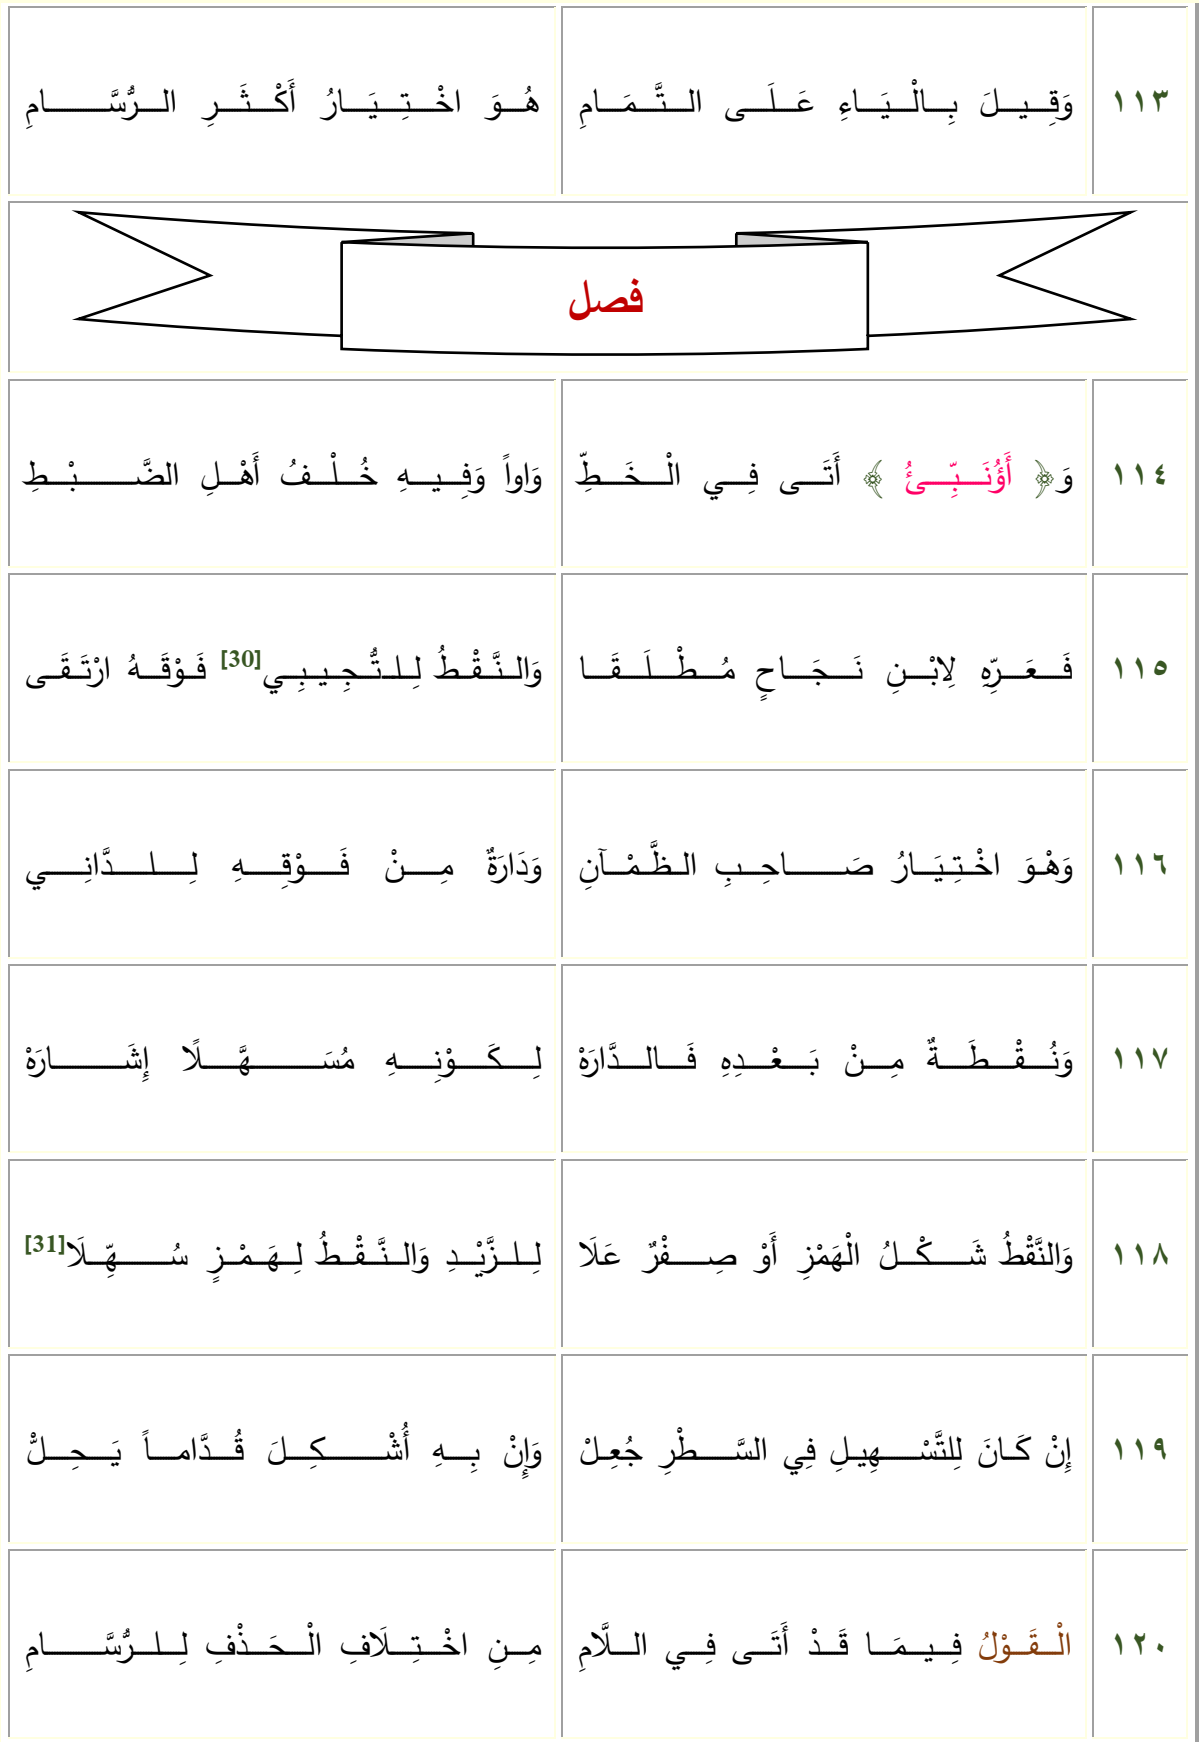 ١١٣ وَقِيلَ بِالْيَاءِ عَلَى التَّمَامِ هُوَ اخْتِيَارُ أَكْثَرِ الرُّسَّامِ
فصل
١١٤ وَ﴿ أَؤُنَبِّئُ ﴾ أَتَى فِي الْخَطِّ وَاواً وَفِيهِ خُلْفُ أَهْلِ الضَّبْطِ
١١٥ فَعَرِّهِ لِابْنِ نَجَاحٍ مُطْلَقَا وَالنَّقْطُ لِلتُّجِيبِي[30] فَوْقَهُ ارْتَقَى
١١٦ وَهْوَ اخْتِيَارُ صَاحِبِ الظَّمْآنِ وَدَارَةٌ مِنْ فَوْقِهِ لِلدَّانِي
١١٧ وَنُقْطَةٌ مِنْ بَعْدِهِ فَالدَّارَهْ لِكَوْنِهِ مُسَهَّلًا إِشَارَهْ
١١٨ وَالنَّقْطُ شَكْلُ الْهَمْزِ أَوْ صِفْرٌ عَلَا لِلزَّيْدِ وَالنَّقْطُ لِهَمْزٍ سُهِّلَا[31]
١١٩ إِنْ كَانَ لِلتَّسْهِيلِ فِي السَّطْرِ جُعِلْ وَإِنْ بِهِ أُشْكِلَ قُدَّاماً يَحِلُّ
١٢٠ الْقَوْلُ فِيمَا قَدْ أَتَى فِي اللَّامِ مِنِ اخْتِلَافِ الْحَذْفِ لِلرُّسَّامِ